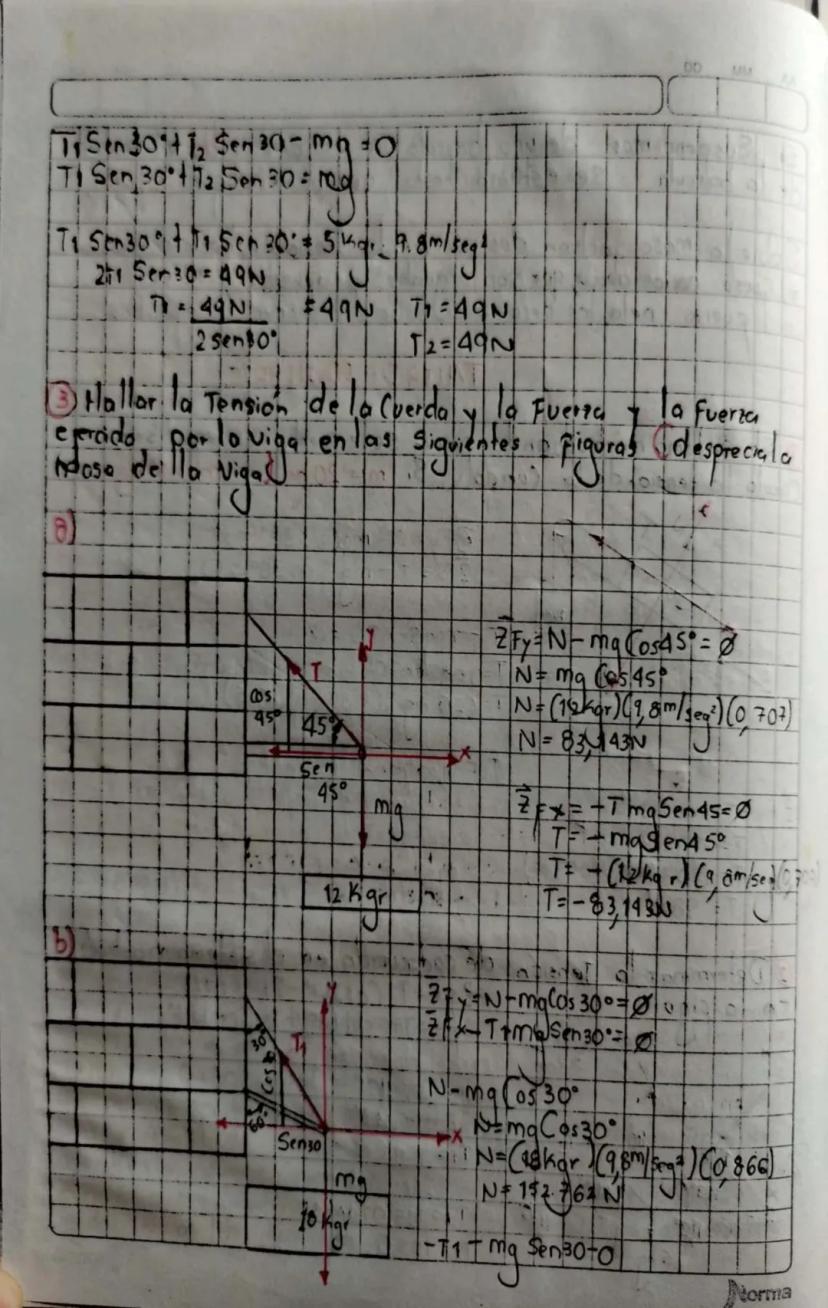 DD MM AA
T₁ Sen 30° + T₂ Sen 30 - mg = 0
T₁ Sen 30° + T₂ Sen 30 = mg
T₁ Sen 30° + T₁ Sen 30° = 5 kgr. 9.8m/seg²
2T₁ Sen 30 = 49N
T₁ = 49N = 49N T₁ = 49N
2 sen 30° T₂ = 49N
③ Hallar la Tensión de la Cuerda y la Fuerza y la Fuerza
ejercida por la viga en las siguientes figuras (desprecia la
masa de lla viga)
a)
y
T
Cos
45°
45°
x
Sen
45°
mg
12 Kgr
ΣFy = N - mg Cos45° = Ø
N = mg Cos 45°
N = (12kgr) (9,8m/seg²) (0,707)
N = 83,143N
ΣFx = -T mg Sen45 = Ø
T = -mg Sen45°
T = -(12kgr) (9,8m/se
T = -83,143N
b)
y
30°
T₁
Cos
60°
Sen30
x
mg
18 kgr
ΣFy = N - mg Cos 30° = Ø
ΣFx - T + mg Sen 30° = Ø
N - mg Cos 30°
N = mg Cos 30°
N = (18kgr) (9,8m/seg²) (0,866)
N = 152.762 N
-T₁ - mg Sen30 = 0
Norma